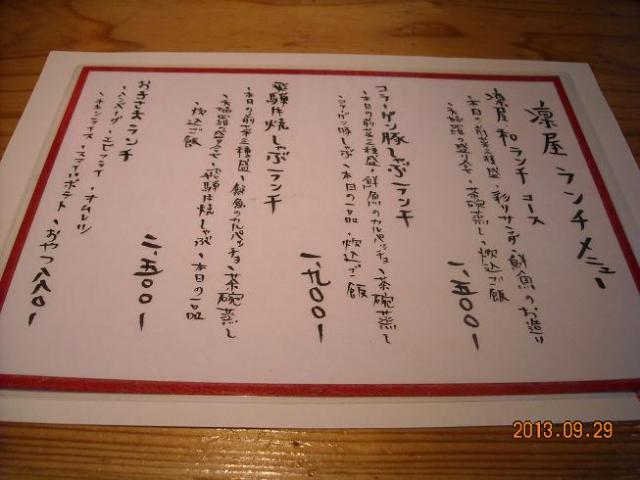 凛屋 ランチメニュー
凛屋 和ランチコース
・本日の前菜三種盛・彩りサラダ・鮮魚のお造り
・天婦羅の盛り合せ・茶碗蒸し・炊込ご飯
一、五〇〇一
コラーゲン豚しゃぶランチ
・本日の前菜三種盛・鮮魚のカルパッチョ・茶碗蒸し
・コラーゲン豚しゃぶ・本日の一品・炊込ご飯
一、九〇〇一
飛騨牛焼しゃぶランチ
・本日の前菜三種盛・鮮魚のカルパッチョ・茶碗蒸し
・天婦羅盛り合せ・飛騨牛焼しゃぶ・本日の一品
・炊込ご飯
二、五〇〇一
お子さまランチ
・ハンバーグ・エビフライ・オムレツ
・チキンライス・フライドポテト・おやつ 八八〇一
2013.09.29